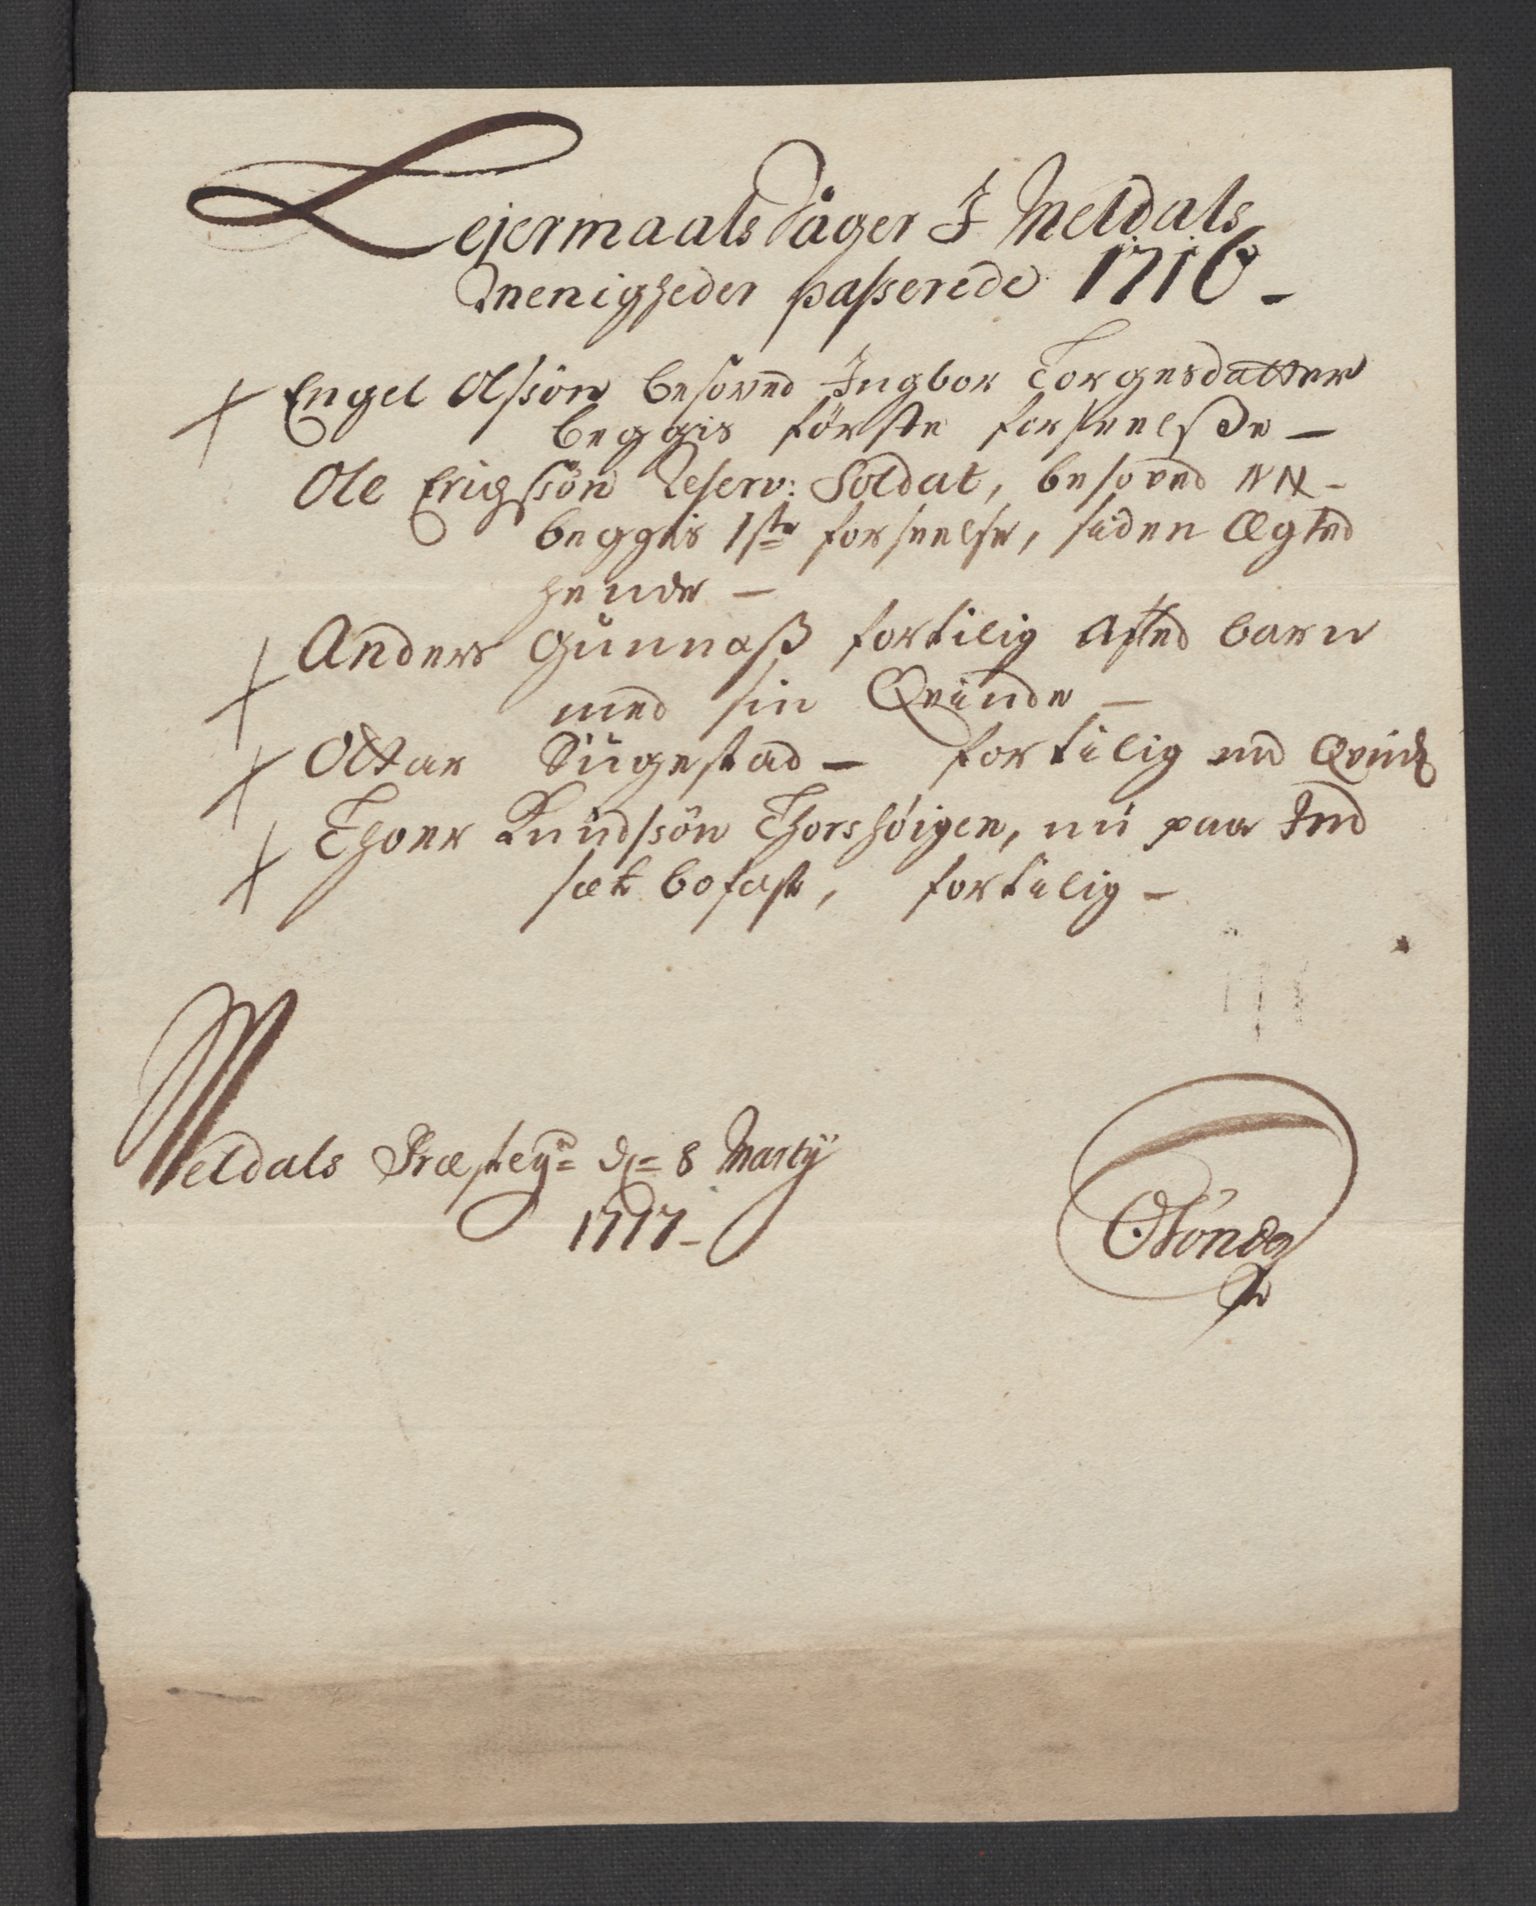 Lejermaals Sager I Meldals
Menigheder passerede 1716 -
Engel Olssön besoved Ingbor Torgersdatter
beggis förste forseelsse -
Ole Erichssön Reserv: Soldat, besoved NN -
beggis 1ste forseelse, siden Ægted
hende -
Anders Gunnasß fortilig afled barn
med sin Qvinde -
Ottar Sugestad - fortilig md Qvind
Thoer Knudssön Thorshöigen, nu paa Ind
sæt bofast, fortilig -
Meldals Præstegd d: 8 Martij
1717 -